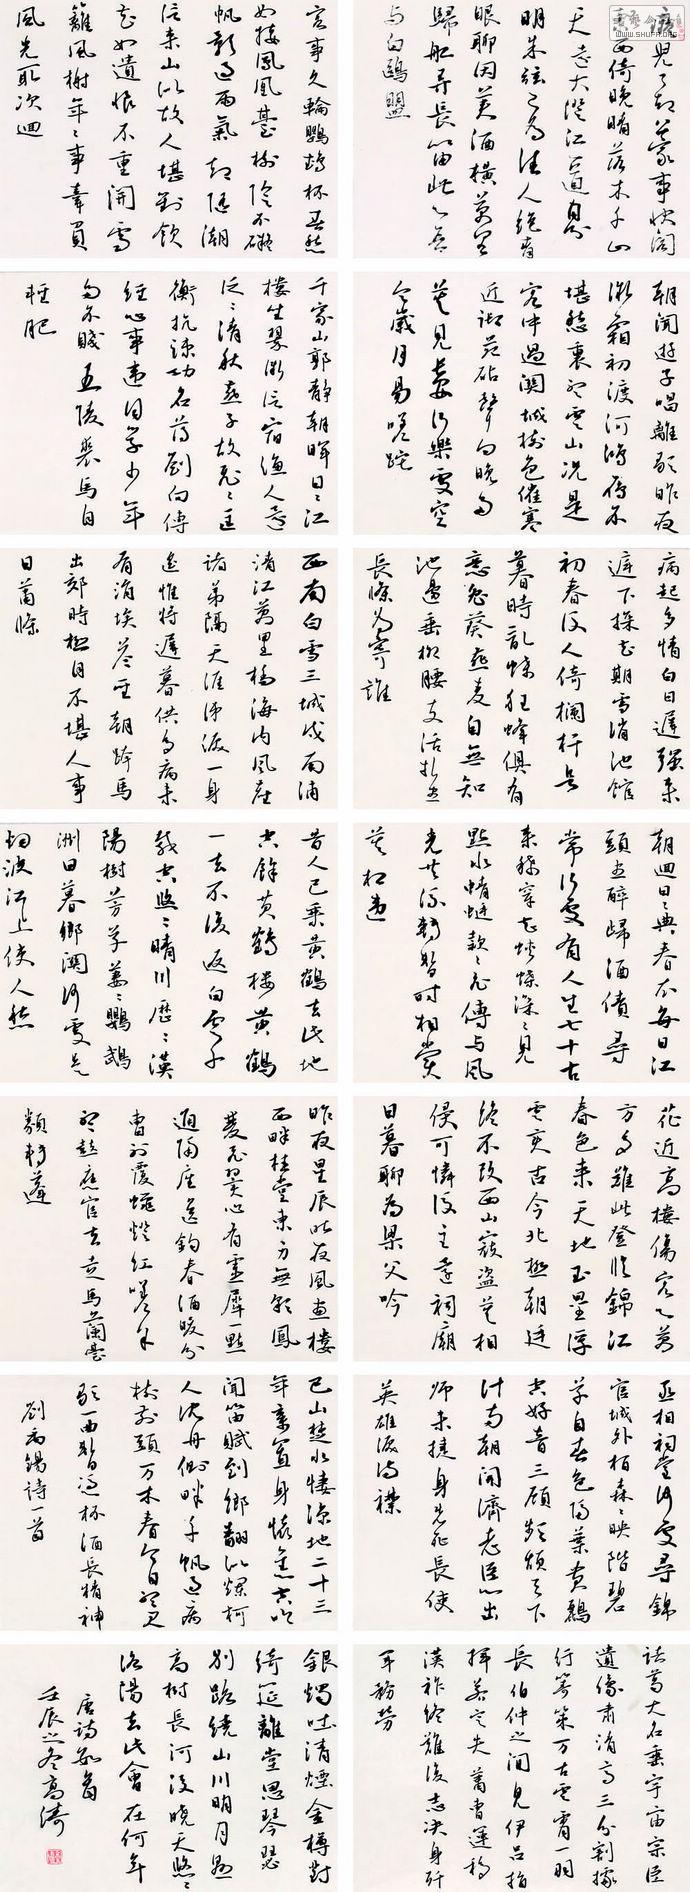 痴兒了却公家事快閣
東西倚晚晴落木千山
天遠大澄江一道月分
明朱弦已為佳人絕青
眼聊因美酒橫萬里
歸船弄長笛此心吾
與白鷗盟
宦事久輸鸚鵡杯居然
如接鳳凰臺樹陰不礙
帆影過雨氣却隨潮
信來山似故人堪對飲
花如遺恨不重開雪
籬風榭年〻事辜負
風光取次迴
朝聞遊子唱離歌昨夜
微霜初渡河鴻雁不
堪愁裏聽雲山況是
客中過關城樹色催寒
近御苑砧聲向晚多
莫見長安行樂處空
令歲月易蹉跎
千家山郭靜朝暉日〻江
樓坐翠微信宿漁人還
泛〻清秋燕子故飛〻匡
衡抗疏功名薄劉向傳
經心事違同學少年
多不賤五陵裘馬自
輕肥
病起多情白日遲强來
庭下探花期雪消池館
初春後人倚欄杆欲
暮時亂蝶狂蜂俱有
意兔葵燕麥自無知
池邊垂柳腰支活折盡
長條為寄誰
西南白雪三城戍南浦
清江萬里橋海內風塵
諸弟隔天涯涕淚一身
遙惟將遲暮供多病未
有涓埃答聖朝跨馬
出郊時極目不堪人事
日蕭條
朝迴日〻典春衣每日江
頭盡醉歸酒債尋
常行處有人生七十古
來稀穿花蛺蝶深〻見
點水蜻蜓款〻飛傳與風
光共流轉暫時相賞
莫相違
昔人已乘黃鶴去此地
空餘黃鶴樓黃鶴
一去不復返白雲千
載空悠〻晴川歷〻漢
陽樹芳草萋〻鸚鵡
洲日暮鄉關何處是
烟波江上使人愁
花近高樓傷客心萬
方多難此登臨錦江
春色來天地玉壘浮
雲變古今北極朝廷
終不改西山寇盜莫相
侵可憐後主還祠廟
日暮聊為梁父吟
昨夜星辰昨夜風畫樓
西畔桂堂東身無彩鳳
雙飛翼心有靈犀一點
通隔座送鈎春酒暖分
曹射覆蠟燈紅嗟余
聽鼓應官去走馬蘭臺
類轉蓬
丞相祠堂何處尋錦
官城外柏森〻映階碧
草自春色隔葉黃鸝
空好音三顧頻煩天下
計兩朝開濟老臣心出
師未捷身先死長使
英雄淚滿襟
巴山楚水凄涼地二十三
年棄置身懷舊空吟
聞笛賦到鄉翻似爛柯
人沈舟側畔千帆過病
樹前頭万木春今日聽君
歌一曲暫憑杯酒長精神
劉禹錫詩一首
諸葛大名垂宇宙宗臣
遺像肅清高三分割據
紆籌策万古雲霄一羽
毛伯仲之間見伊呂指
揮若定失蕭曹運移
漢祚終難復志決身殲
軍務勞
銀燭吐清煙金樽對
綺筵離堂思琴瑟
別路繞山川明月隱
高樹長河沒曉天悠〻
洛陽去此會在何年
唐詩數首
壬辰之冬高濤
WWW.SHUFA.ORG